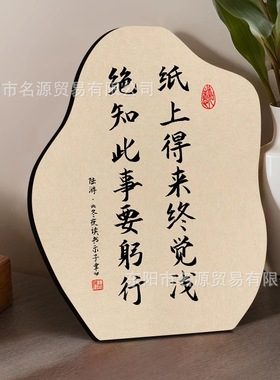 纸上得来终觉浅
绝知此事要躬行
陆游·《冬夜读书示子聿》
市名源贸易有限公司
阳市名源贸易有限公司